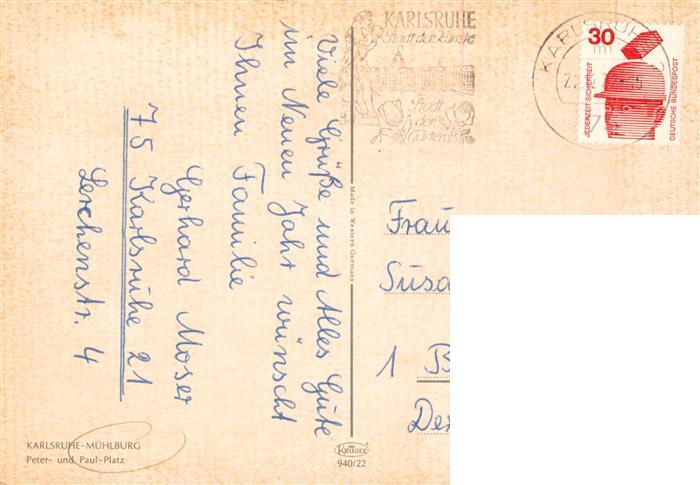 Viele Grüße und Alles Gute
im Neuen Jahr wünscht
Ihnen Familie
Gerhard Moser
75 Karlsruhe 21
Lerchenstr. 4
KARLSRUHE-MÜHLBURG
Peter- und Paul-Platz
Made in Western Germany
KRÜGER
940/22
KARLSRUHE
Stadt der Künste
Stadt
der
Gärten
KARLSRUHE
30
JEDERZEIT SICHERHEIT
DEUTSCHE BUNDESPOST
Frau
Susa
1 B